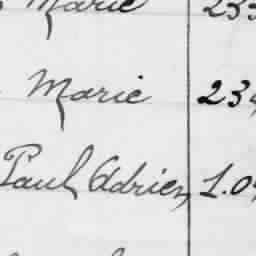 Marie
Marie 23
Paul Adrien, 1.0